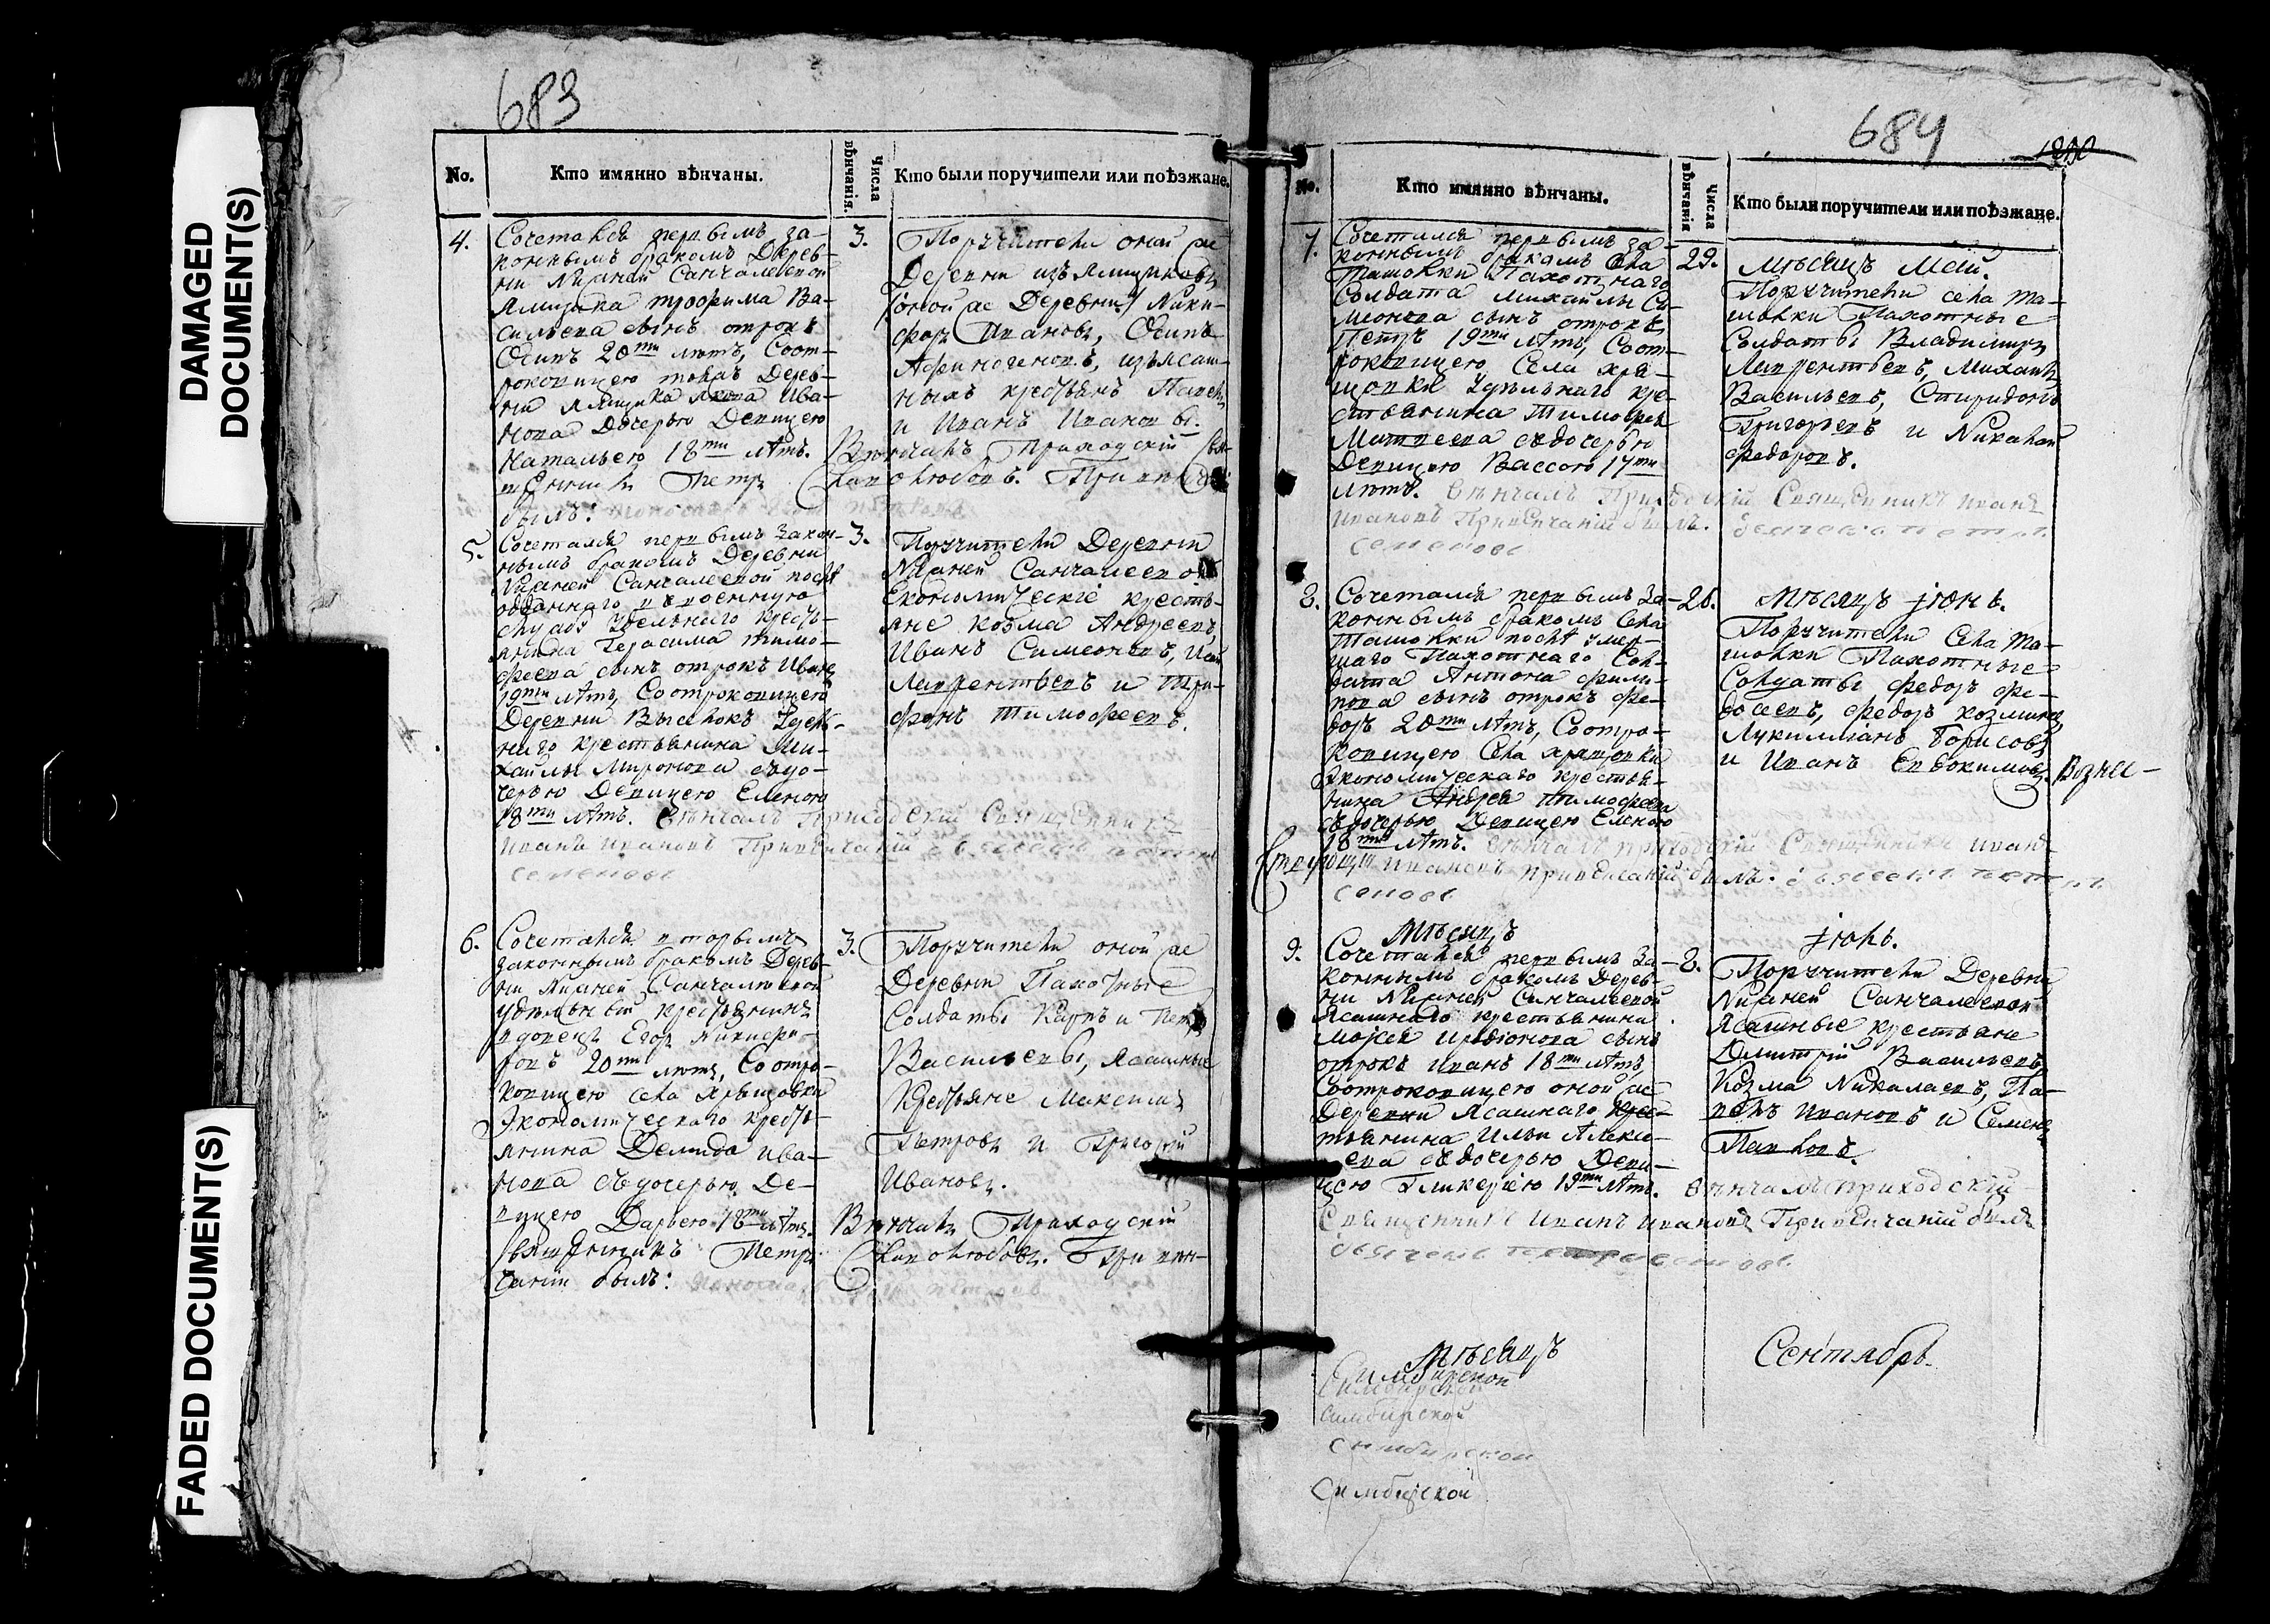 DAMAGED
DOCUMENT(S)
FADED DOCUMENT(S)
683
No.
Кто имянно вѣнчаны.
Числа
вѣнчанія.
Кто были поручители или поѣзжане.
4.
Сочетался первымъ за-
коннымъ бракомъ Дерев-
ни Нижней Санчалеевой
Ямщика трофима Ва-
сильева сынъ отрокъ
Осипъ 20ти лѣтъ, Соот-
роковицею тояжъ Дерев-
ни Ямщика Якова Ива-
нова Дочерью Девицею
Натальею 18ти лѣтъ.
3.
Поручители оной же
Деревни изъ Ямщиковъ
/оной же Деревни/ Ники-
форъ Ивановъ, Осипъ
Афиногеновъ, изъ ясаш-
ныхъ крестьянъ Павелъ
и Иванъ Ивановы.
Вѣнчалъ Приходскій Свя-
щенникъ Петръ
былъ:
5.
Сочетался первымъ закон-
нымъ бракомъ Деревни
Нижней Санчалеевой послѣ
отданнаго въ военную
службу Удѣльнаго кресть-
янина Герасима тимо-
феева сынъ отрокъ Иванъ
19ти лѣтъ, Соотроковицею
Деревни Выселокъ Удѣль-
наго крестьянина Ми-
хайлы Миронова съ до-
черью Девицею Еленою
18ти лѣтъ. вѣнчалъ Приходскій Священникъ
Иванъ Ивановъ Привѣнчаній
семеновъ
3.
Поручители Деревни
Нижней Санчалеевой
Економическіе кресть-
яне Козма Андреевъ,
Иванъ Симеоновъ,
Лаврентьевъ и Три-
фонъ Тимофеевъ.
6.
Сочетался вторымъ
законнымъ бракомъ Дерев-
ни Нижней Санчалеевой
удѣльный крестьянинъ
вдовецъ Егоръ Никифо-
ровъ 20ти лѣтъ, Соотро-
ковицею села Хрящовки
Экономическаго кресть-
янина Демида Ива-
нова съ дочерью Де-
вицею Дарьею 18ти лѣтъ.
3.
Поручители оной же
Деревни Пахотные
Солдаты Карпъ и Петръ
Васильевы, Ясашные
Крестьяне Максимъ
Петровъ и Григорій
Ивановъ.
Вѣнчалъ Приходскій
Священникъ Петръ
При вѣн-
чаніи былъ:
684
No.
Кто имянно вѣнчаны.
Числа
вѣнчанія
Кто были поручители или поѣзжане.
7.
Сочетался первымъ за-
коннымъ бракомъ Села
Ташолки Пахотнаго
Солдата Михайлы Си-
меонова сынъ отрокъ
Петръ 19ти лѣтъ, Соот-
роковицею Села Хря-
щовки Удѣльнаго кре-
стьянина Тимофея
Матвеева съ дочерью
Девицею Вассою 17ти
лѣтъ. вѣнчалъ Приходскій Священникъ Иванъ
Ивановъ Привѣнчаній былъ.
семеновъ
29.
Мѣсяцъ Май.
Поручители села Та-
шолки Пахотные
Солдаты Владимиръ
Лаврентьевъ, Михаилъ
Васильевъ, Спиридонъ
Григорьевъ и Николай
Федоровъ.
8.
Сочетался первымъ За-
коннымъ бракомъ Села
Ташолки послѣ умер-
шаго Пахотнаго Сол-
дата Антона Фили-
пова сынъ отрокъ Фе-
доръ 20ти лѣтъ, Соотро-
ковицею Села Хрящовки
Экономическаго крестья-
нина Андрея Тимофеева
съ дочерью Девицею Еленою
18ти лѣтъ. вѣнчалъ приходскій Священникъ Иванъ
Ивановъ привѣнчаній былъ.
26.
Мѣсяцъ Іюнь.
Поручители Села Та-
шолки Пахотные
Солдаты Федоръ Фе-
досеевъ, Федоръ Козминъ,
Лукиллианъ Борисовъ
и Иванъ Евдокимовъ.
Мѣсяцъ
Іюль.
9.
Сочетался первымъ За-
коннымъ бракомъ Дерев-
ни Нижней Санчалеевой
Ясашнаго крестьянина
Мојсея сынъ
отрокъ Иванъ 18ти лѣтъ,
Соотроковицею оной же
Деревни Ясашнаго Крес-
тьянина Ильи Алексе-
ева съ дочерью Деви-
цею Гликеріею 19ти лѣтъ. вѣнчалъ приходскій
Священникъ Иванъ Ивановъ Привѣнчаній былъ
8.
Поручители Деревни
Нижней Санчалеевой
Ясашные крестьяне
Дмитрій Васильевъ,
Козма Николаевъ, Па-
велъ Ивановъ и Семенъ
Павловъ.
Мѣсяцъ
Сентябрь.
Симбирской
Симбирской
симбирской
симбирской
Симбирской